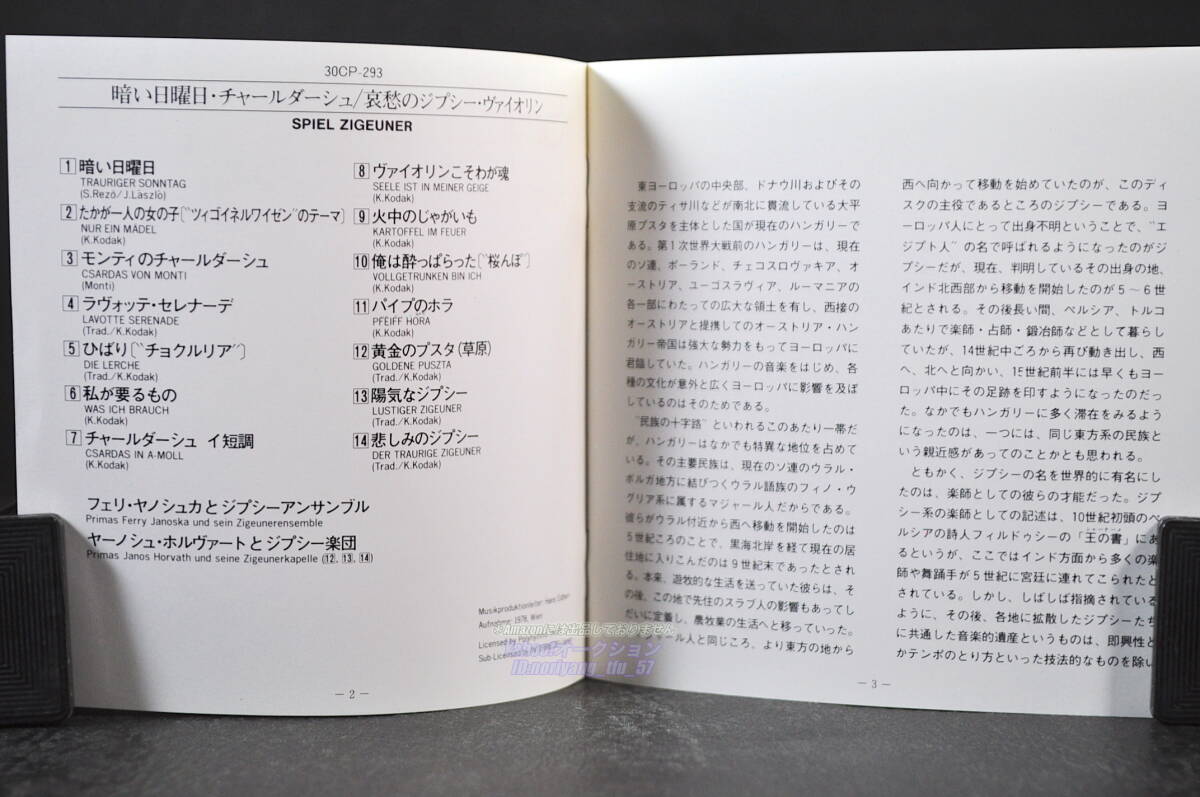 30CP-293
暗い日曜日・チャールダーシュ/哀愁のジプシー・ヴァイオリン
SPIEL ZIGEUNER
1 暗い日曜日
TRAURIGER SONNTAG
(S.Rezö/J.Làszló)
2 たかが一人の女の子〔“ツィゴイネルワイゼン”のテーマ〕
NUR EIN MÄDEL
(K.Kodak)
3 モンティのチャールダーシュ
CSARDAS VON MONTI
(Monti)
4 ラヴォッテ・セレナーデ
LAVOTTE SERENADE
(Trad./K.Kodak)
5 ひばり〔“チョクルリア”〕
DIE LERCHE
(Trad./K.Kodak)
6 私が要るもの
WAS ICH BRAUCH
(K.Kodak)
7 チャールダーシュ イ短調
CSARDAS IN A-MOLL
(K.Kodak)
8 ヴァイオリンこそわが魂
SEELE IST IN MEINER GEIGE
(K.Kodak)
9 火中のじゃがいも
KARTOFFEL IM FEUER
(K.Kodak)
10 俺は酔っぱらった〔“桜んぼ”〕
VOLLGETRUNKEN BIN ICH
(K.Kodak)
11 パイプのホラ
PFEIFF HORA
(K.Kodak)
12 黄金のプスタ(草原)
GOLDENE PUSZTA
(Trad./K.Kodak)
13 陽気なジプシー
LUSTIGER ZIGEUNER
(Trad./K.Kodak)
14 悲しみのジプシー
DER TRAURIGE ZIGEUNER
(Trad./K.Kodak)
フェリ・ヤノシュカとジプシーアンサンブル
Primas Ferry Janoska und sein Zigeunerensemble
ヤーノシュ・ホルヴァートとジプシー楽団
Primas Janos Horvath und seine Zigeunerkapelle (12, 13, 14)
Musikproduktionsleiter: Hans
Aufnahme: 1978, Wien
Licensed by
Sub-Licensed
©Amazonには出品しておりません
Yahoo!オークション
ID:noriyang_tfu_57
— 2 —
東ヨーロッパの中央部、ドナウ川およびその
支流のティサ川などが南北に貫流している大平
原プスタを主体とした国が現在のハンガリーで
ある。第1次世界大戦前のハンガリーは、現在
のソ連、ポーランド、チェコスロヴァキア、オ
ーストリア、ユーゴスラヴィア、ルーマニアの
各一部にわたっての広大な領土を有し、西接の
オーストリアと提携してのオーストリア・ハン
ガリー帝国は強大な勢力をもってヨーロッパに
君臨していた。ハンガリーの音楽をはじめ、各
種の文化が意外と広くヨーロッパに影響を及ぼ
しているのはそのためである。
“民族の十字路”といわれるこのあたり一帯だ
が、ハンガリーはなかでも特異な地位を占めて
いる。その主要民族は、現在のソ連のウラル・
ボルガ地方に結びつくウラル語族のフィノ・ウ
グリア系に属するマジャール人だからである。
彼らがウラル付近から西へ移動を開始したのは
5世紀ころのことで、黒海北岸を経て現在の居
住地に入りこんだのは9世紀末であったとされ
る。本来、遊牧的な生活を送っていた彼らは、そ
の後、この地で先住のスラブ人の影響もあってし
だいに定着し、農牧業の生活へと移っていった。
マジャール人と同じころ、より東方の地から
西へ向かって移動を始めていたのが、このディ
スクの主役であるところのジプシーである。ヨ
ーロパ人にとって出身不明ということで、“エ
ジプト人”の名で呼ばれるようになったのがジ
プシーだが、現在、判明しているその出身の地、
インド北西部から移動を開始したのが5～6世
紀とされる。その後長い間、ペルシア、トルコ
あたりで楽師・占師・鍛冶師などとして暮らし
ていたが、14世紀中ごろから再び動き出し、西
へ、北へと向かい、15世紀前半には早くもヨー
ロッパ中にその足跡を印すようになったのだっ
た。なかでもハンガリーに多く滞在をみるよう
になったのは、一つには、同じ東方系の民族と
いう親近感があってのことかとも思われる。
ともかく、ジプシーの名を世界的に有名にし
たのは、楽師としての彼らの才能だった。ジプ
シー系の楽師としての記述は、10世紀初頭のペ
ルシアの詩人フィルドゥシーの「王の書」にあ
るというが、ここではインド方面から多くの楽
師や舞踊手が5世紀に宮廷に連れてこられたと
されている。しかし、しばしば指摘されている
ように、その後、各地に拡散したジプシーたち
に共通した音楽的遺産というものは、即興性と
かテンポのとり方といった技法的なものを除い
— 3 —